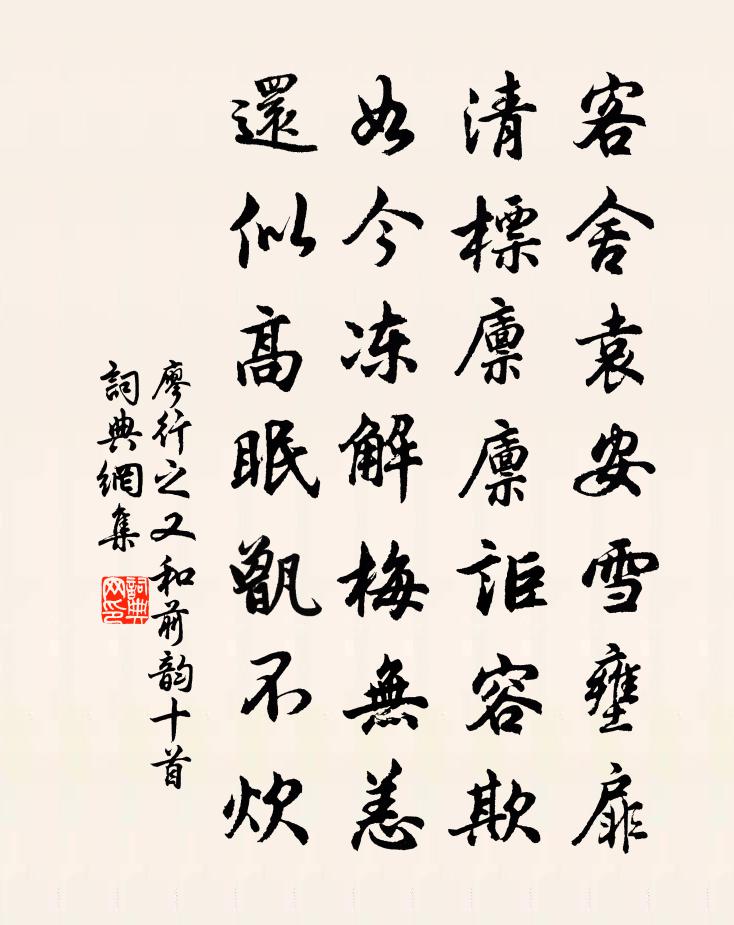 客舍袁安雪壅扉
清標廪廪詎容欺
如今冻解梅無恙
還似高眠甑不炊
廖行之又和前韵十首
詞典網集
詞典
网印